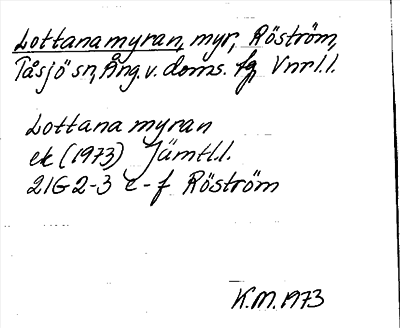 Lottanamyran, myr, Röström,
Tåsjö sn, Ång. v. doms. fg, Vnrl.l.
Lottana myran
ek (1973) Jämtl.l.
21G 2-3 e-f Röström
K.M. 1973